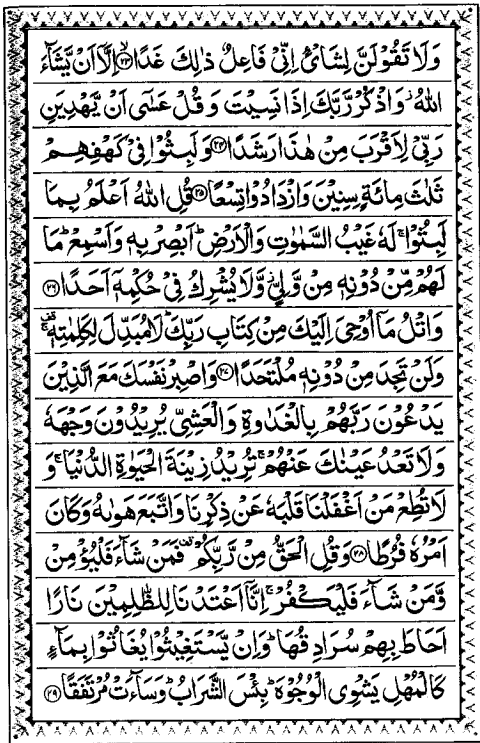 وَلَا تَقُوْلَنَّ لِشَایْءٍ اِنِّیْ فَاعِلٌ ذٰلِكَ غَدًا ۙ﴿۲۳﴾ اِلَّاۤ اَنْ یَّشَآءَ
اللّٰهُ ؗ وَاذْكُرْ رَّبَّكَ اِذَا نَسِیْتَ وَ قُلْ عَسٰۤی اَنْ یَّهْدِیَنِ
رَبِّیْ لِاَقْرَبَ مِنْ هٰذَا رَشَدًا ﴿۲۴﴾ وَ لَبِثُوْا فِیْ كَهْفِهِمْ
ثَلٰثَ مِائَةٍ سِنِیْنَ وَازْدَادُوْا تِسْعًا ﴿۲۵﴾ قُلِ اللّٰهُ اَعْلَمُ بِمَا
لَبِثُوْا ۚ لَهٗ غَیْبُ السَّمٰوٰتِ وَ الْاَرْضِ ؕ اَبْصِرْ بِهٖ وَ اَسْمِعْ ؕ مَا
لَهُمْ مِّنْ دُوْنِهٖ مِنْ وَّلِیٍّ ؗ وَّ لَا یُشْرِكُ فِیْ حُكْمِهٖۤ اَحَدًا ﴿۲۶﴾
وَاتْلُ مَاۤ اُوْحِیَ اِلَیْكَ مِنْ كِتَابِ رَبِّكَ ؕ لَا مُبَدِّلَ لِكَلِمٰتِهٖ ۚ۫
وَلَنْ تَجِدَ مِنْ دُوْنِهٖ مُلْتَحَدًا ﴿۲۷﴾ وَاصْبِرْ نَفْسَكَ مَعَ الَّذِیْنَ
یَدْعُوْنَ رَبَّهُمْ بِالْغَدٰوةِ وَ الْعَشِیِّ یُرِیْدُوْنَ وَجْهَهٗ
وَلَا تَعْدُ عَیْنٰكَ عَنْهُمْ ۚ تُرِیْدُ زِیْنَةَ الْحَیٰوةِ الدُّنْیَا ۚ وَ
لَا تُطِعْ مَنْ اَغْفَلْنَا قَلْبَهٗ عَنْ ذِكْرِنَا وَاتَّبَعَ هَوٰىهُ وَكَانَ
اَمْرُهٗ فُرُطًا ﴿۲۸﴾ وَقُلِ الْحَقُّ مِنْ رَّبِّكُمْ ۫ فَمَنْ شَآءَ فَلْیُؤْمِنْ
وَّمَنْ شَآءَ فَلْیَكْفُرْ ۙ اِنَّاۤ اَعْتَدْنَا لِلظّٰلِمِیْنَ نَارًا
اَحَاطَ بِهِمْ سُرَادِقُهَا ؕ وَ اِنْ یَّسْتَغِیْثُوْا یُغَاثُوْا بِمَآءٍ
كَالْمُهْلِ یَشْوِی الْوُجُوْهَ ؕ بِئْسَ الشَّرَابُ ؕ وَ سَآءَتْ مُرْتَفَقًا ﴿۲۹﴾